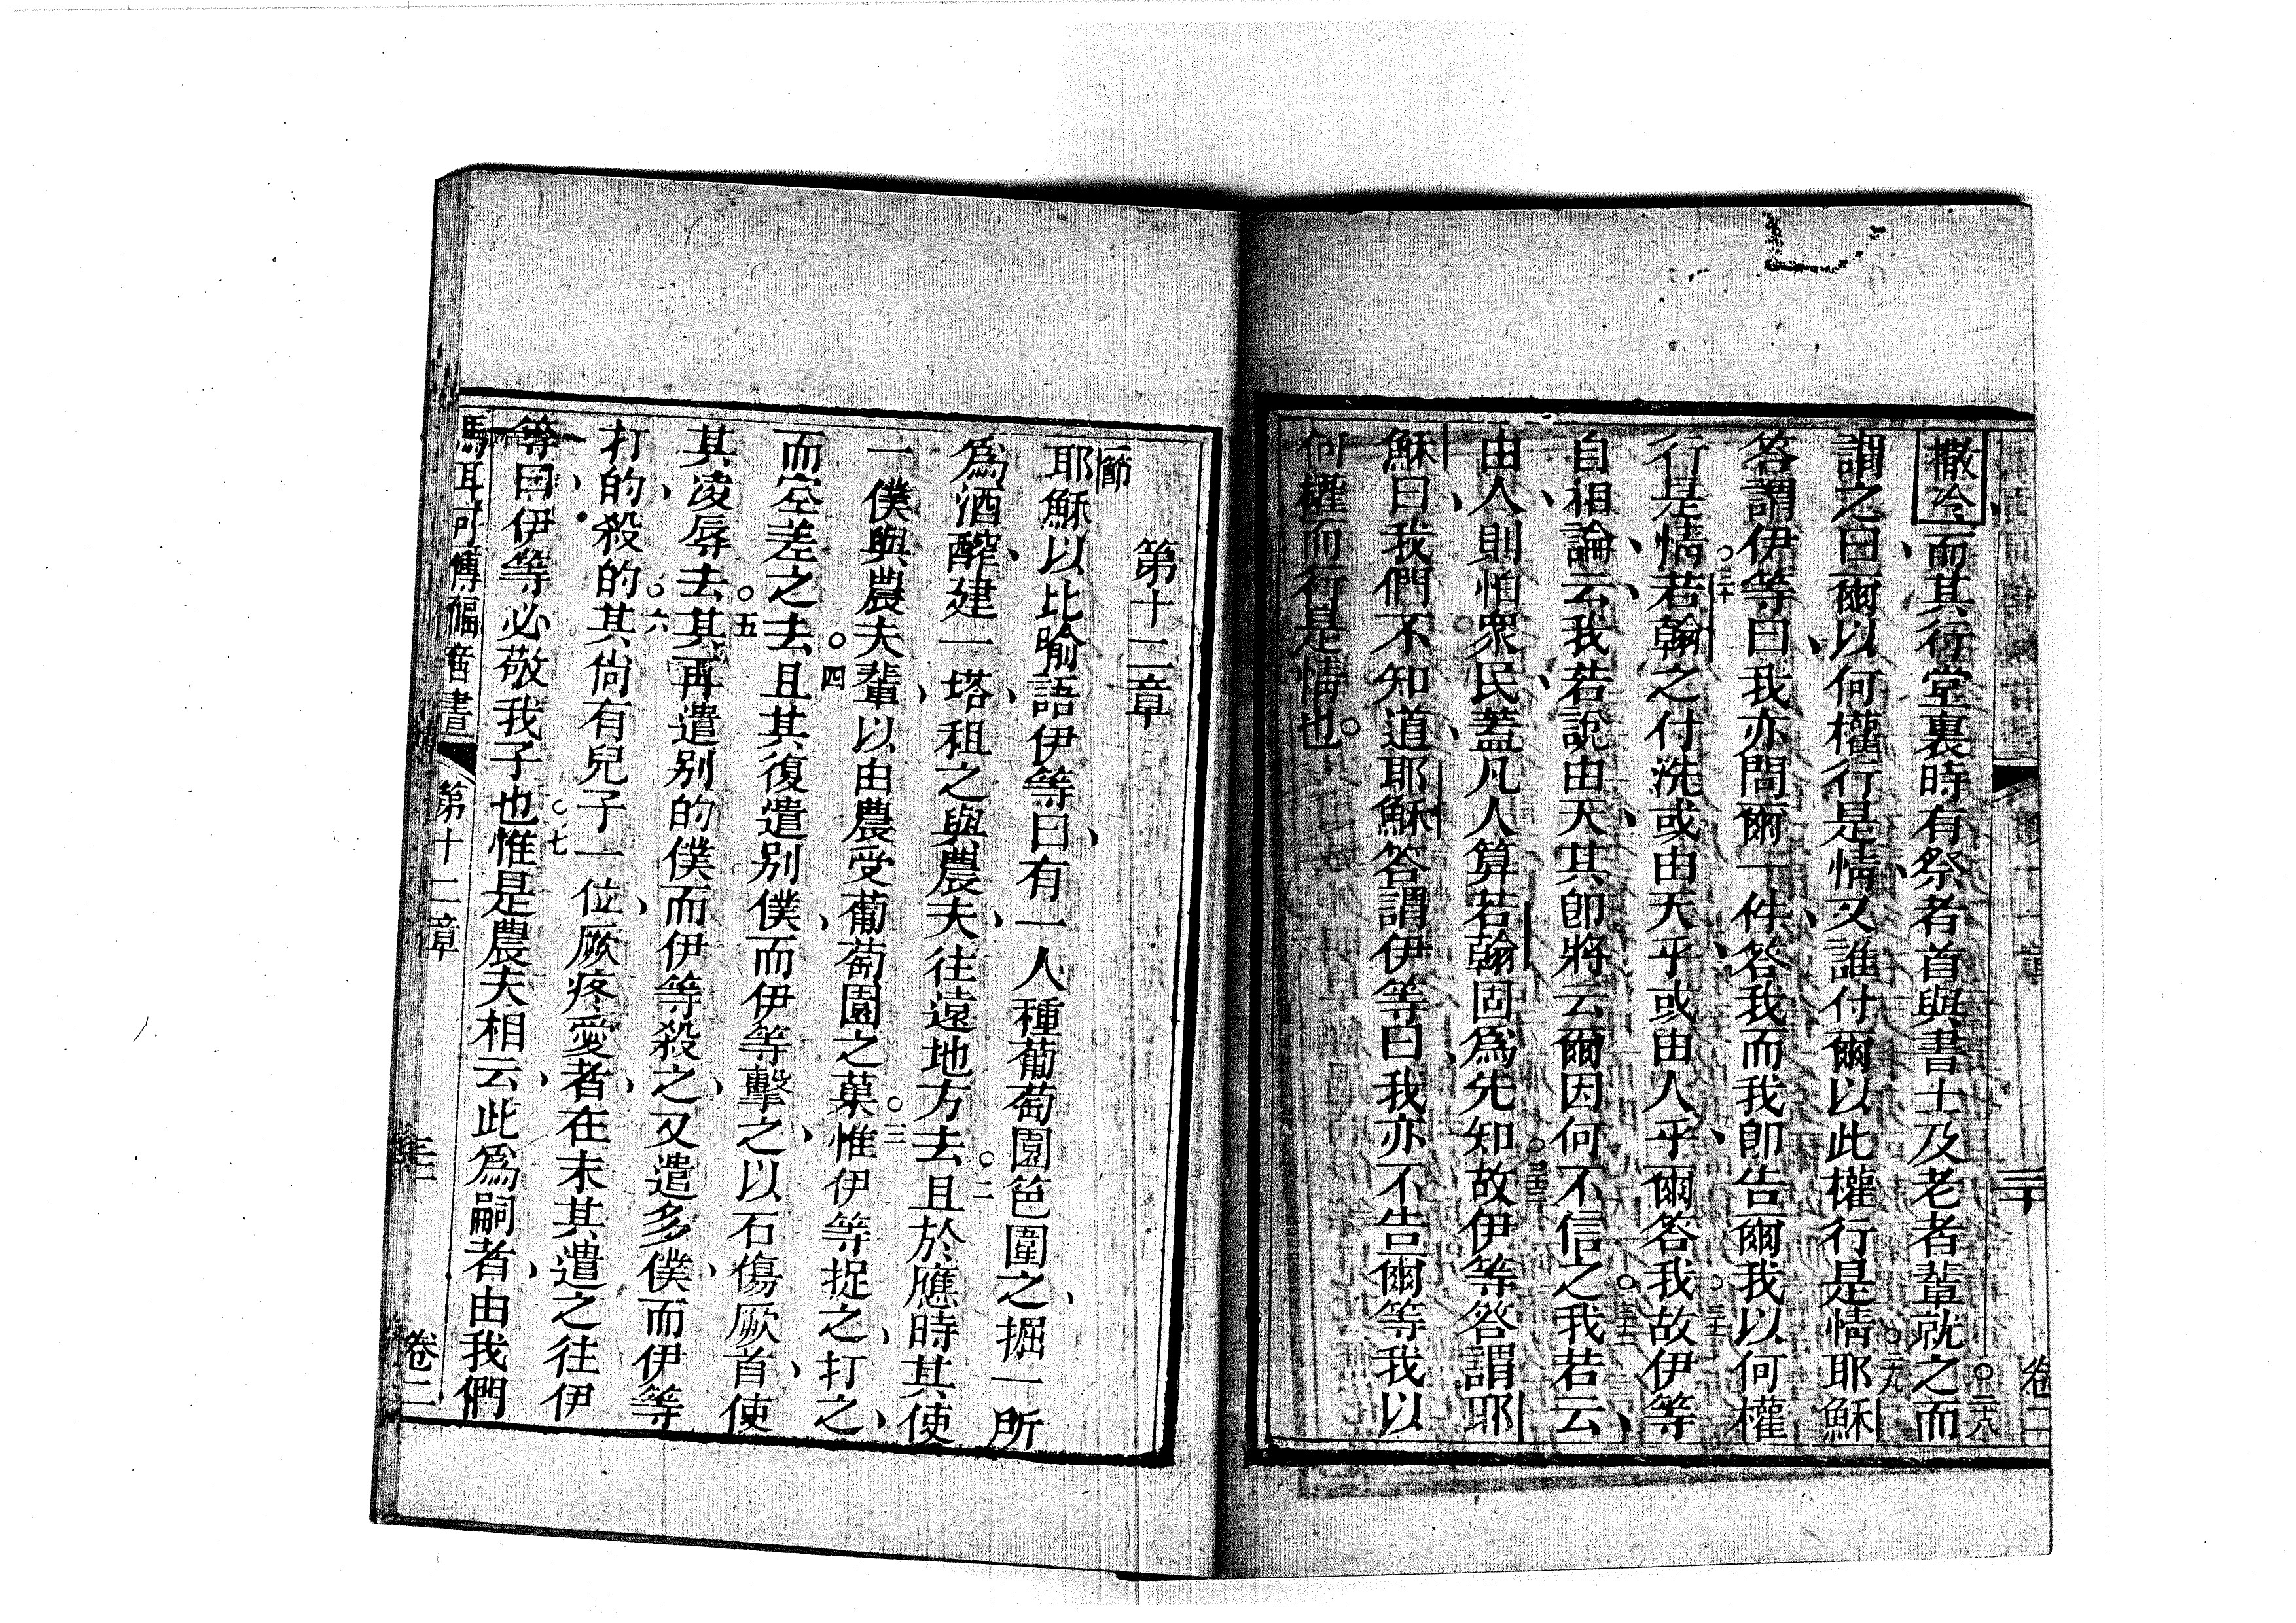 撒冷而其行堂裏時有祭者首與書士及老者輩就之而
謂之曰爾以何權行是情又誰付爾以此權行是情耶穌
答謂伊等曰我亦問爾一件答我而我卽告爾我以何權
行是情若翰之付洗或由天乎或由人乎爾答我故伊等
自相論云我若說由天其卽將云爾因何不信之我若云
由人則怕衆民蓋凡人算若翰固爲先知故伊等答謂耶
穌曰我們不知道耶穌答謂伊等曰我亦不告爾等我以
何權而行是情也。
第十二章
節
耶穌以比喻語伊等曰有一人種葡萄園笆圍之掘一所
爲酒醡建一塔租之與農夫往遠地方去。二且於應時其使
一僕與農夫輩以由農受葡萄園之菓。三惟伊等捉之打之
而空差之去。四且其復遣别僕而伊等擊之以石傷厥首使
其凌辱去。五其再遣别的僕而伊等殺之又遣多僕而伊等
打的殺的。六其尙有兒子一位厥疼愛者在末其遣之往伊
等曰伊等必敬我子也。七惟是農夫相云此爲嗣者由我們
馬耳可傳福音書 第十二章 卷二